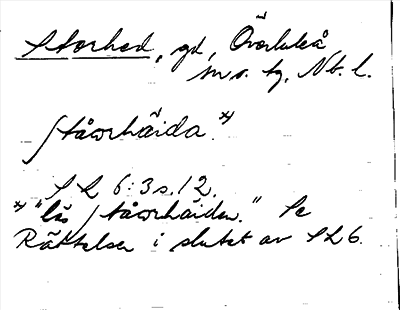 Storhed, gd, Överluleå,
ms. tg. Nb. l.
Ståorhäida.*)
SL 6:3 s. 12.
*) "läs Ståorhäiden." Se
Rättelser i slutet av SL 6.